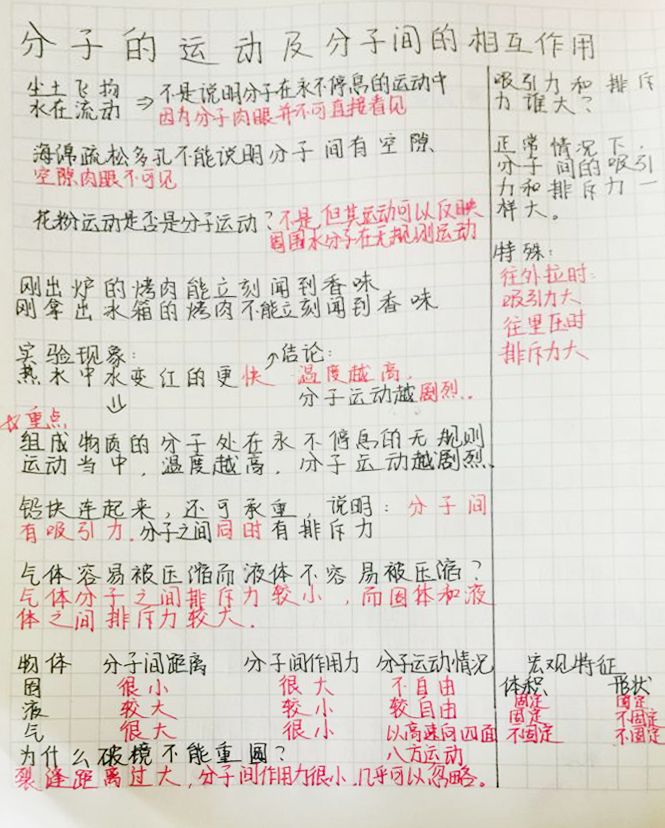 分子的运动及分子间的相互作用
尘土飞扬
水在流动 ⇒ 不是说明分子在永不停息的运动中
因为分子肉眼并不可直接看见
海绵疏松多孔不能说明分子间有空隙
空隙肉眼不可见
花粉运动是否是分子运动？不是，但其运动可以反映
周围水分子在无规则运动
刚出炉的烤肉能立刻闻到香味
刚拿出冰箱的烤肉不能立刻闻到香味
实验现象：
热水中水变红的更快
结论：
温度越高，
分子运动越剧烈．
重点
组成物质的分子处在永不停息的无规则
运动当中，温度越高，分子运动越剧烈．
铅块连起来，还可承重，说明：分子间
有吸引力．分子之间同时有排斥力
气体容易被压缩而液体不容易被压缩？
气体分子之间排斥力较小，而固体和液
体之间排斥力较大．
吸引力和排斥
力谁大？
正常情况下，
分子间的吸引
力和排斥力一
样大。
特殊：
往外拉时：
吸引力大
往里压时
排斥力大
物体 分子间距离 分子间作用力 分子运动情况 宏观特征
体积 形状
固 很小 很大 不自由 固定 固定
液 较大 较小 较自由 固定 不固定
气 很大 很小 以高速向四面 不固定 不固定
八方运动
为什么破镜不能重圆？
裂缝距离过大，分子间作用力很小，几乎可以忽略。